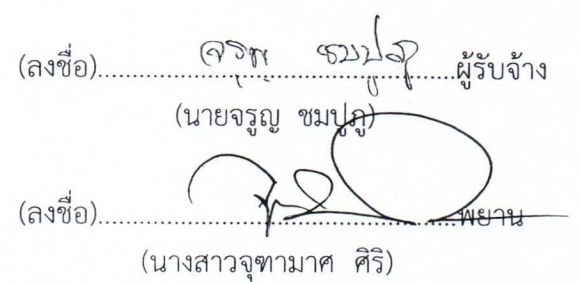 (ลงชื่อ)..........จรูญ ชมปูภู..........ผู้รับจ้าง
(นายจรูญ ชมปูภู)
(ลงชื่อ)....................พยาน
(นางสาวจุฑามาศ ศิริ)